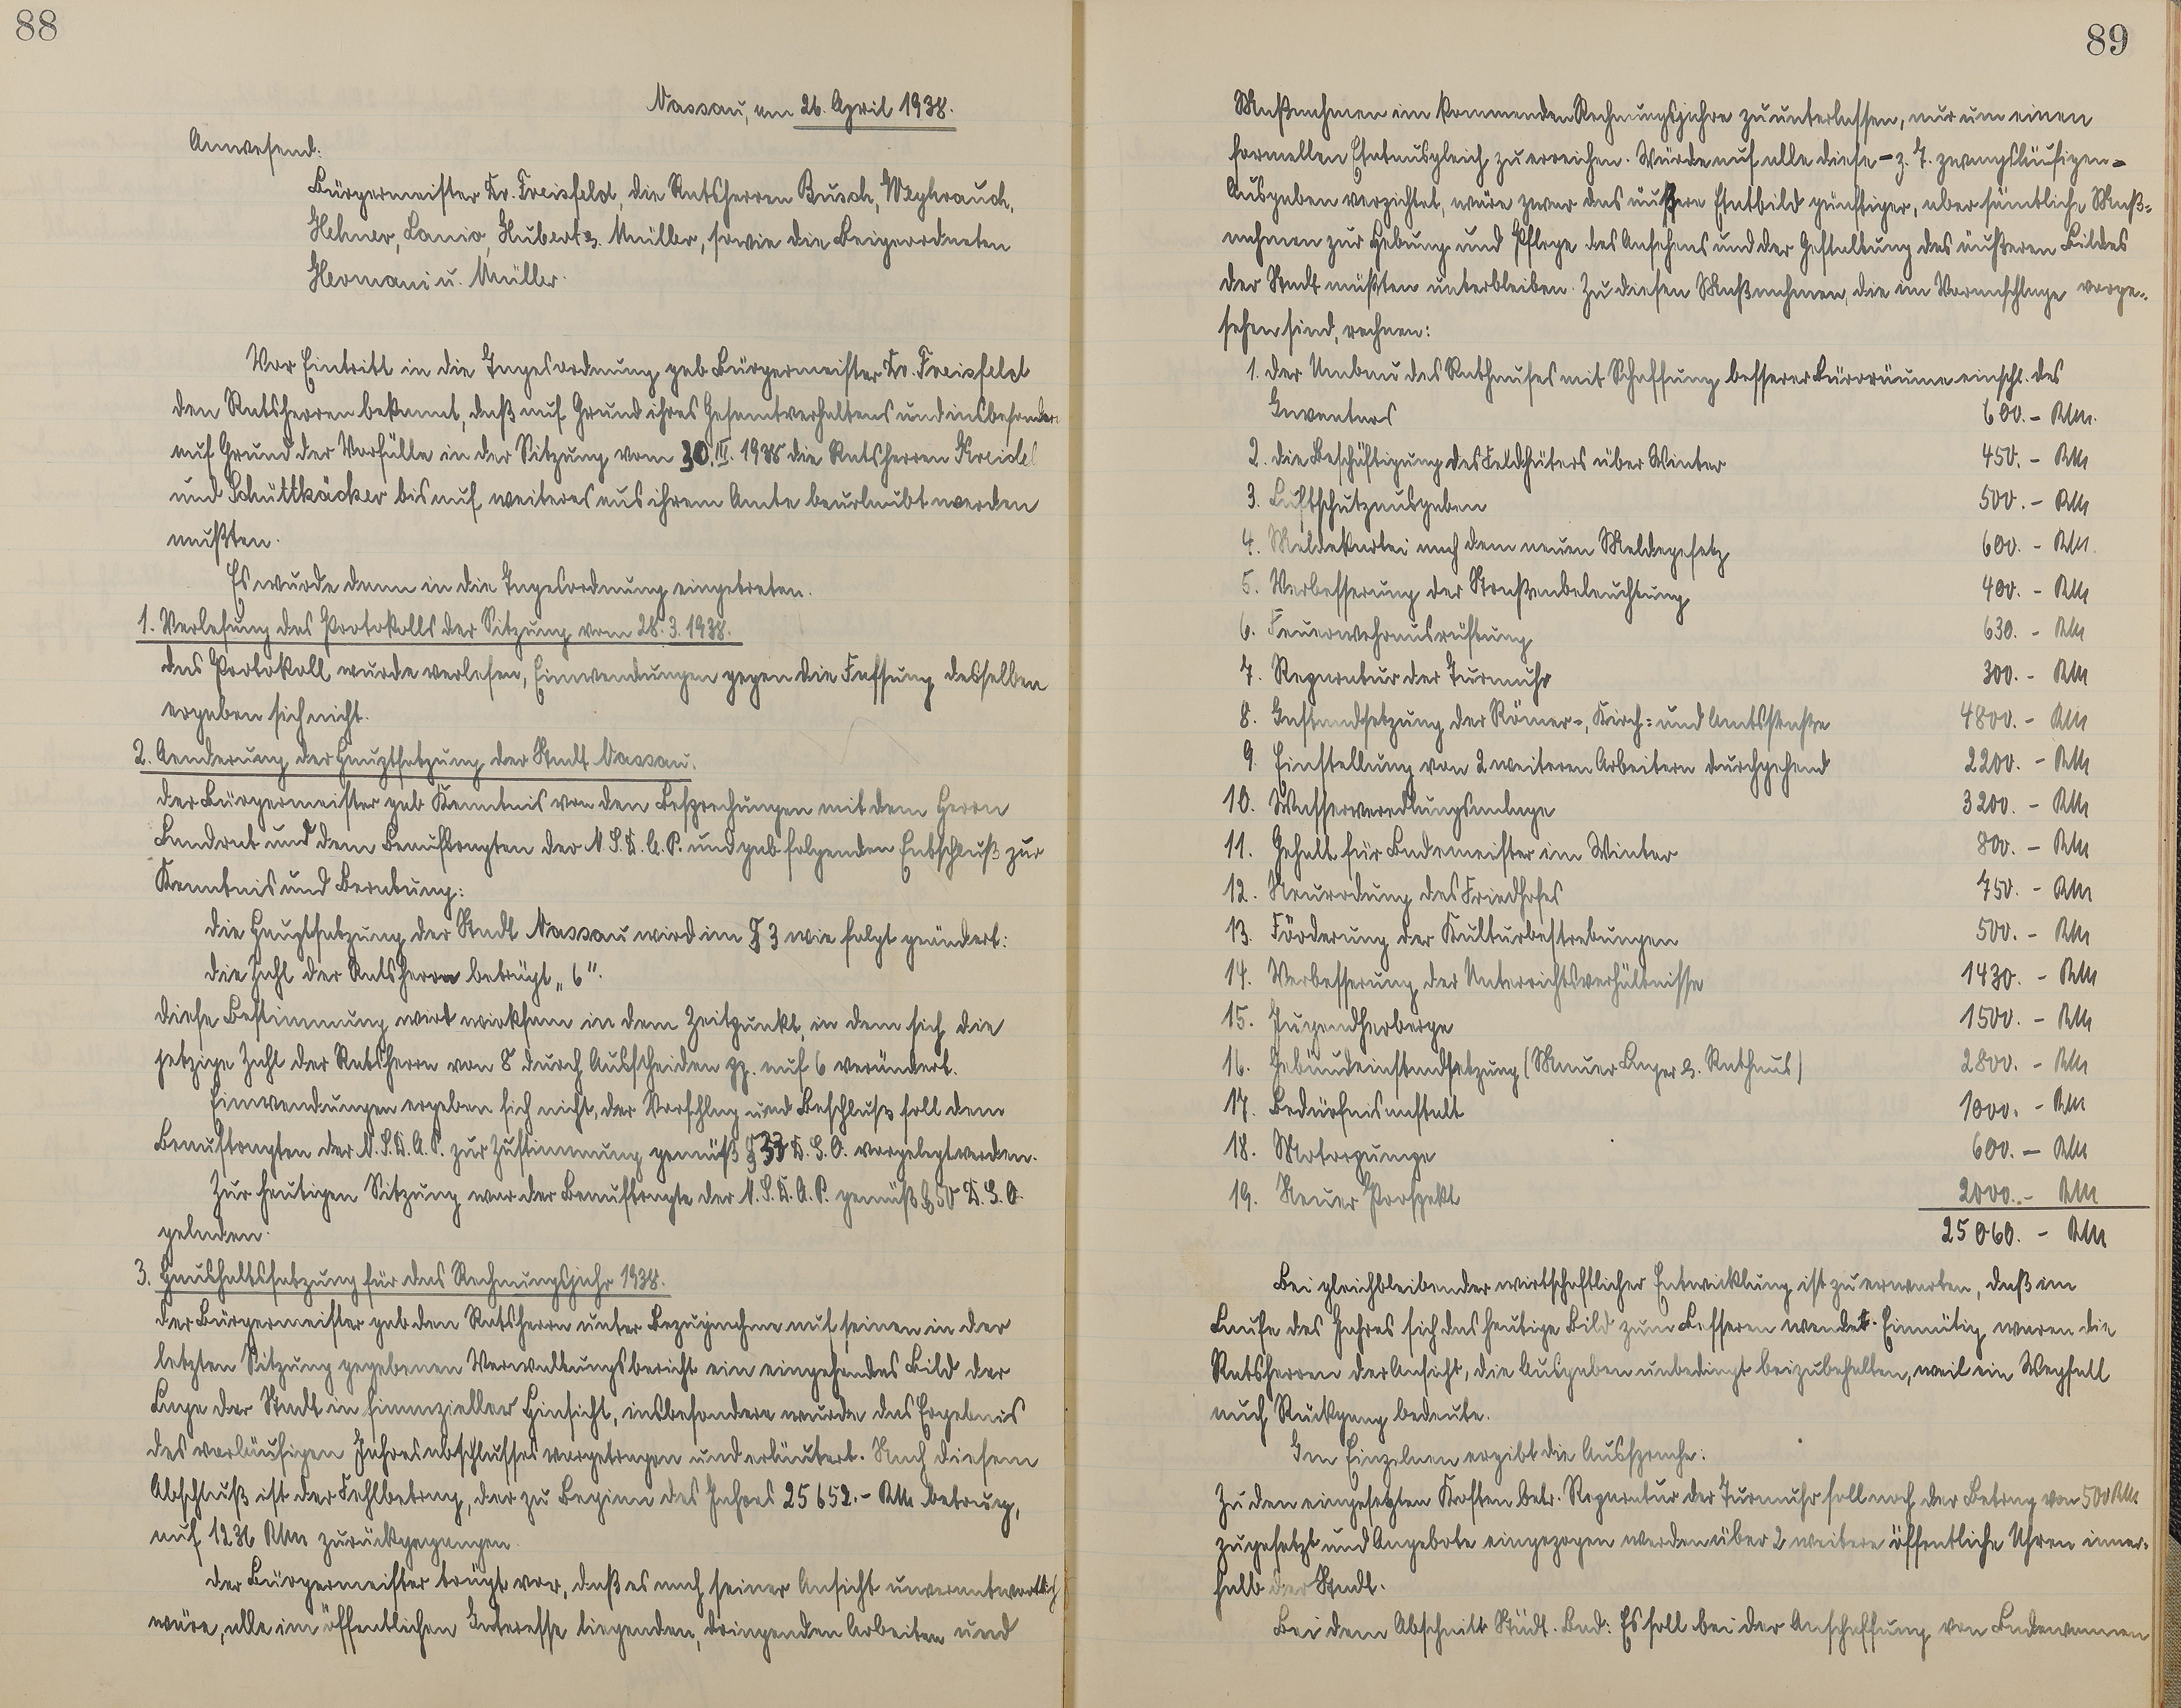 88
Nassau, am 26. April 1938.
Anwesend:
Bürgermeister Dr. Freisfeld, die Ratsherren Busch, Weyhrauch,
Hehner, Lanio, Huberts. Müller, sowie die Beigeordneten
Hermani u. Müller.
Vor Eintritt in die Tagesordnung gab Bürgermeister Dr. Freisfeld
den Ratsherren bekannt, daß auf Grund ihres Gesamtverhaltens und insbesondere
auf Grund der Vorfälle in der Sitzung vom 30. III. 1938 die Ratsherren Kreidel
und Schüttkäcker bis auf weiteres aus ihrem Amte beurlaubt werden
mußten.
Es wurde dann in die Tagesordnung eingetreten.
1. Verlesung des Protokolls der Sitzung vom 28. 3. 1938.
das Protokoll wurde verlesen, Einwendungen gegen die Fassung desselben
ergaben sich nicht.
2. Aenderung der Hauptsatzung der Stadt Nassau.
der Bürgermeister gab Kenntnis von den Besprechungen mit dem Herrn
Landrat und dem Beauftragten der N.S.D.A.P. und gab folgenden Entschluß zur
Kenntnis und Beratung:
die Hauptsatzung der Stadt Nassau wird im § 3 wie folgt geändert:
die Zahl der Ratsherrn beträgt „6".
diese Bestimmung wird wirksam in dem Zeitpunkt, in dem sich die
jetzige Zahl der Ratsherrn von 8 durch Ausscheiden pp. auf 6 verändert.
Einwendungen ergeben sich nicht, der Vorschlag und Beschluß soll dem
Beauftragten der N.S.D.A.P. zur Zustimmung gemäß § 33 D.G.O. vorgelegt werden.
Zur heutigen Sitzung war der Beauftragte der N.S.D.A.P. gemäß § 50 D.G.O.
geladen.
3. Haushaltssatzung für das Rechnungsjahr 1938.
der Bürgermeister gab den Ratsherrn unter Bezugnahme auf seinen in der
letzten Sitzung gegebenen Verwaltungsbericht ein eingehendes Bild der
Lage der Stadt in finanzieller Hinsicht, insbesondere wurde das Ergebnis
des vorläufigen Jahresabschlusses vorgetragen und erläutert. Nach diesem
Abschluß ist der Fehlbetrag, der zu Beginn des Jahres 25652.- RM betrug,
auf 1236 RM zurückgegangen.
der Bürgermeister trägt vor, daß es nach seiner Ansicht unverantwortlich
wäre, alle im öffentlichen Interesse liegenden, dringenden Arbeiten und
89
Maßnahmen im kommenden Rechnungsjahre zu unterlassen, nur um einen
formellen Etatausgleich zu erreichen. Würde auf alle diese - z. T. zwangsläufigen -
Ausgaben verzichtet, wäre zwar das äußere Etatbild günstiger, aber sämtliche Maß-
nahmen zur Hebung und Pflege des Ansehens und der Gestaltung des äußeren Bildes
der Stadt müßten unterbleiben. Zu diesen Maßnahmen, die im Voranschlage vorge-
sehen sind, rechnen:
1. der Umbau des Rathauses mit Schaffung besserer Büroräume einschl. des
Inventars 600.- RM.
2. die Beschäftigung des Feldhüters über Winter 450.- RM
3. Luftschutzausgaben 500.- RM
4. Meldekartei nach dem neuen Meldegesetz 600.- RM.
5. Verbesserung der Straßenbeleuchtung 400.- RM
6. Feuerwehrausrüstung 630.- RM
7. Reparatur der Turmuhr 300.- RM
8. Instandsetzung der Römer-, Kirch- und Amtsstraße 4800.- RM
9. Einstellung von 2 weiteren Arbeitern durchgehend 2200.- RM
10. Wasserveredlungsanlage 3200.- RM
11. Gehalt für Bademeister im Winter 800.- RM
12. Neuordung des Friedhofes 750.- RM
13. Förderung der Kulturbestrebungen 500.- RM
14. Verbesserung der Unterrichtsverhältnisse 1430.- RM
15. Jugendherberge 1500.- RM
16. Gebäudeinstandsetzung (Mauer Anger &. Rathaus) 2800.- RM
17. Bedürfnisanstalt 1000.- RM
18. Motorpumpe 600.- RM
19. Neuer Prospekt 2000.- RM
25060.- RM
Bei gleichbleibender wirtschaftlicher Entwicklung ist zu erwarten, daß im
Laufe des Jahres sich das heutige Bild zum Besseren wendet. Einmütig waren die
Ratsherren der Ansicht, die Ausgaben unbedingt beizubehalten, weil ein Wegfall
auch Rückgang bedeute.
Im Einzelnen ergibt die Aussprache:
Zu den eingesetzten Kosten betr. Reparatur der Turmuhr soll noch der Betrag von 500 RM
zugesetzt und Angebote eingezogen werden über 2 weitere öffentliche Uhren inner-
halb der Stadt.
Bei dem Abschnitt Städt. Bad: Es soll bei der Anschaffung von Badewannen